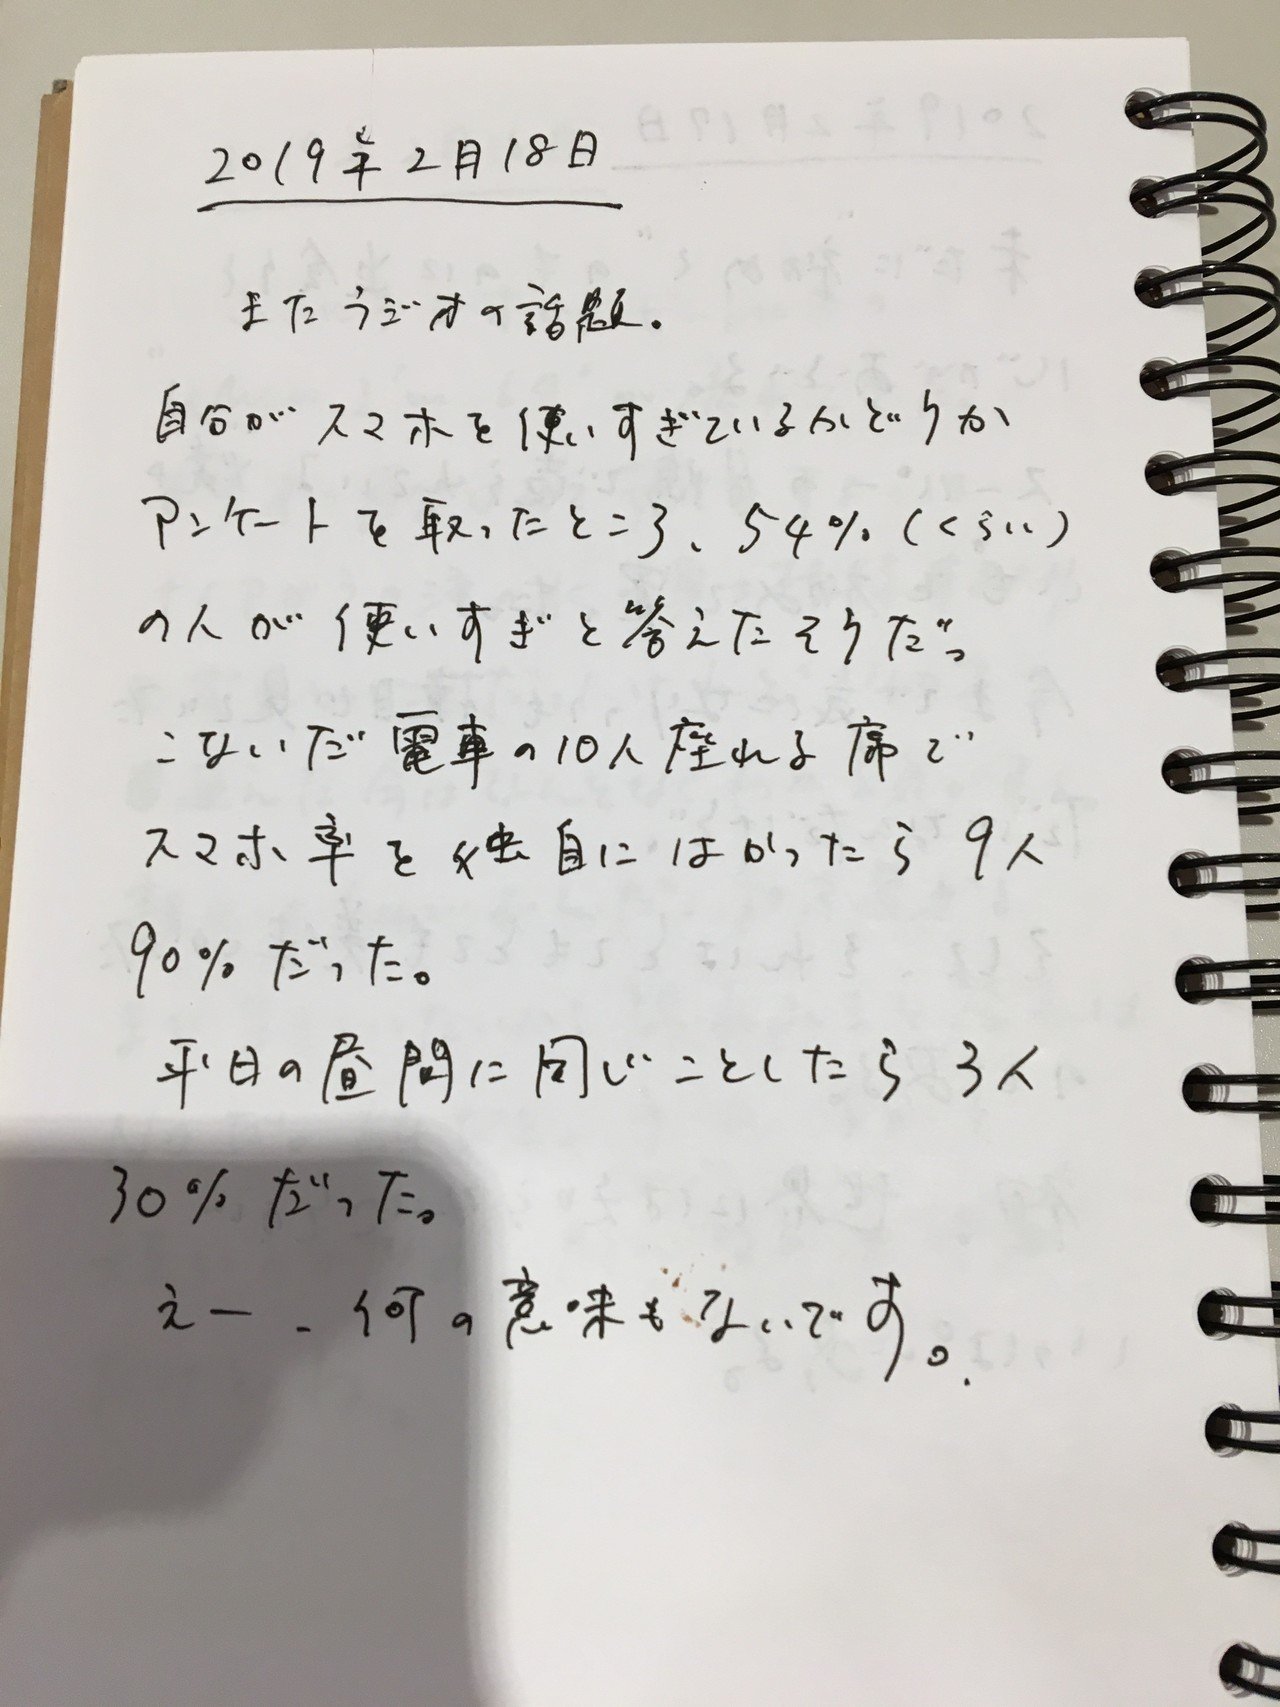 2019年2月18日
またラジオの話題。
自分がスマホを使いすぎているかどうか
アンケートを取ったところ、54%(くらい)
の人が使いすぎと答えたそうだ。
こないだ電車の10人座れる席で
スマホ率を独自にはかったら9人
90%だった。
平日の昼間に同じことしたら3人
30%だった。
えー、何の意味もないです。